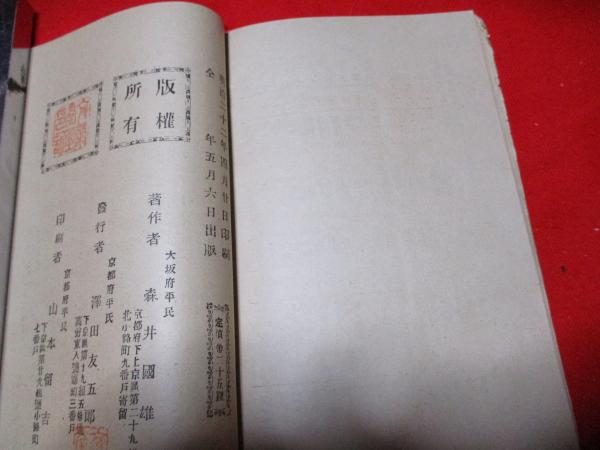 明治二十二年四月廿日印刷
全　年五月六日出版
定價金二十五錢
版權
所有
大坂府平民
著作者　森井國雄
京都府下上京區第二十九
北小路町九番戸寄留
京都府平民
發行者　澤田友五郎
下京區第十九組五條通
高倉東入
三番戸
京都府平民
印刷者　山本留吉
下京區第廿九組
七番戸